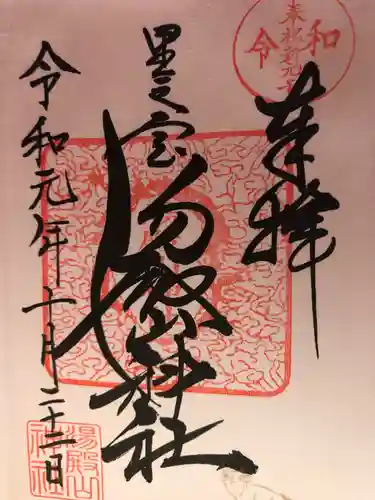 奉拝
里之宮
湯殿山神社
令和元年十月二十二日
令和
湯殿山
神社